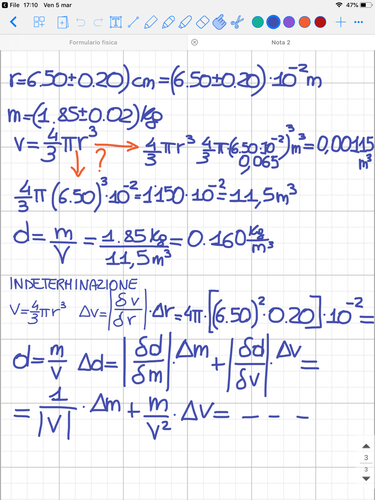 File 17:10 Ven 5 mar 47%
Formulario fisica Nota 2
r=6.50±0.20)cm=(6.50±0.20)·10⁻² m
m=(1.85±0.02)kg
V=4/3πr³ → 4/3πr³ 4/3π·(6.50·10⁻²)³m³=0,00115 m³
? 0,065
4/3π(6.50)³·10⁻²=1150·10⁻²=11,5m³
d=m/V=1.85kg/11,5m³=0.160kg/m³
INDETERMINAZIONE
V=4/3πr³ ΔV=|δV/δr|·Δr=4π·[(6.50)²·0.20]·10⁻²=
d=m/V Δd=|δd/δm|·Δm+|δd/δV|·ΔV=
=1/|V|·Δm+m/V²·ΔV= – – –
3
3